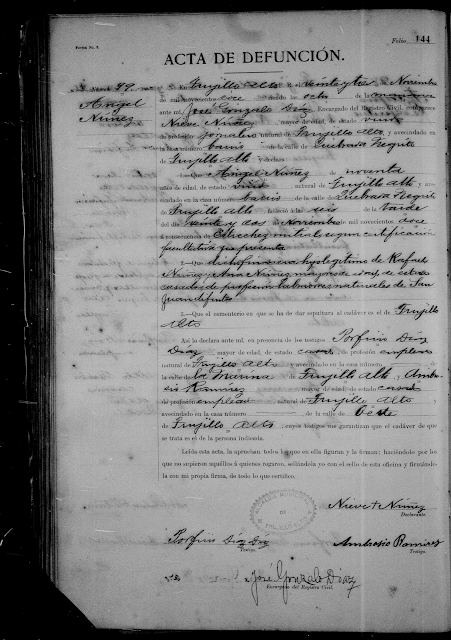 Forma No. 8
Folio 144
ACTA DE DEFUNCIÓN.
Número 99
Angel
Núñez
En Trujillo Alto á veinte y tres de Noviembre
de mil novecientos doce siendo las ocho de la mañana
ante mí, José Gonzalo Díaz Encargado del Registro Civil, comparece
Nieve Núñez mayor de edad, de estado viudo
de profesión jornalero natural de Trujillo Alto, y avecindado en
la casa número barrio de la calle de Quebrada Negrito
de Trujillo Alto y declara
1.—Que Angel Núñez de noventa
años de edad, de estado viudo natural de Trujillo Alto y ave-
cindado en la casa número barrio de la calle de Quebrada Negrito
de Trujillo Alto, falleció á las seis de la tarde
del día veinte y dos de Noviembre de mil novecientos doce
á consecuencia de Estrechez mitral segun certificación
facultativa que presenta
2.—Que dicho finado hijo legítimo de Rafael
Núñez y Ana Núñez mayores de edad, de estado
casados de profesión labores naturales de San
Juan difuntos
3.—Que el cementerio en que se ha de dar sepultura al cadáver es el de Trujillo
Alto
Así lo declara ante mí, en presencia de los testigos Porfirio Díaz
Díaz mayor de edad, de estado casado, de profesión empleado
natural de Trujillo Alto y avecindado en la casa número
de la calle de La Marina Trujillo Alto, Ambro-
sio Ramírez mayor de edad, de estado casado
de profesión empleado natural de Trujillo Alto y
avecindado en la casa número de la calle de Oeste
de Trujillo Alto, cuyos testigos me garantizan que el cadáver de que
se trata es el de la persona indicada.
Leída esta acta, la aprueban todos los que en ella figuran y la firman: haciéndolo por los
que no supieron aquéllos á quienes rogaron, sellándola yo con el sello de esta oficina y firmándo-
la con mi propia firma, de todo lo que certifico.
Nieve + Núñez
Declarante.
Porfirio Díaz Díaz
Testigo.
Ambrosio Ramírez
Testigo.
José Gonzalo Díaz
Encargado del Registro Civil.